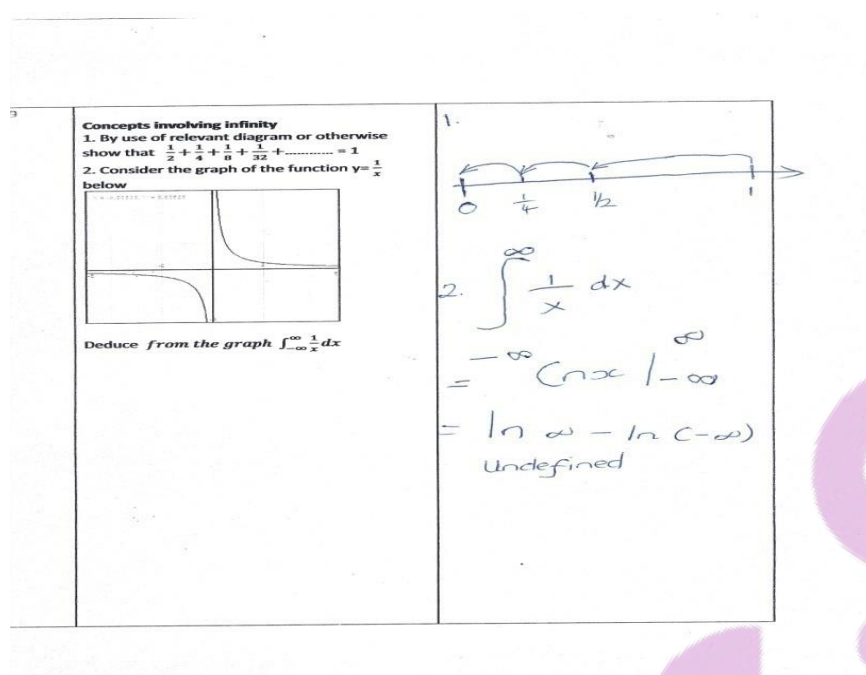 Concepts involving infinity
1. By use of relevant diagram or otherwise
show that 1/2 + 1/4 + 1/8 + 1/32 +............ = 1
2. Consider the graph of the function y= 1/x
below
Deduce from the graph ∫_{-∞}^{∞} 1/x dx
1.
0 1/4 1/2 1
2. ∫_{-∞}^{∞} 1/x dx
= lnx |_{-∞}^{∞}
= ln ∞ - ln (-∞)
Undefined